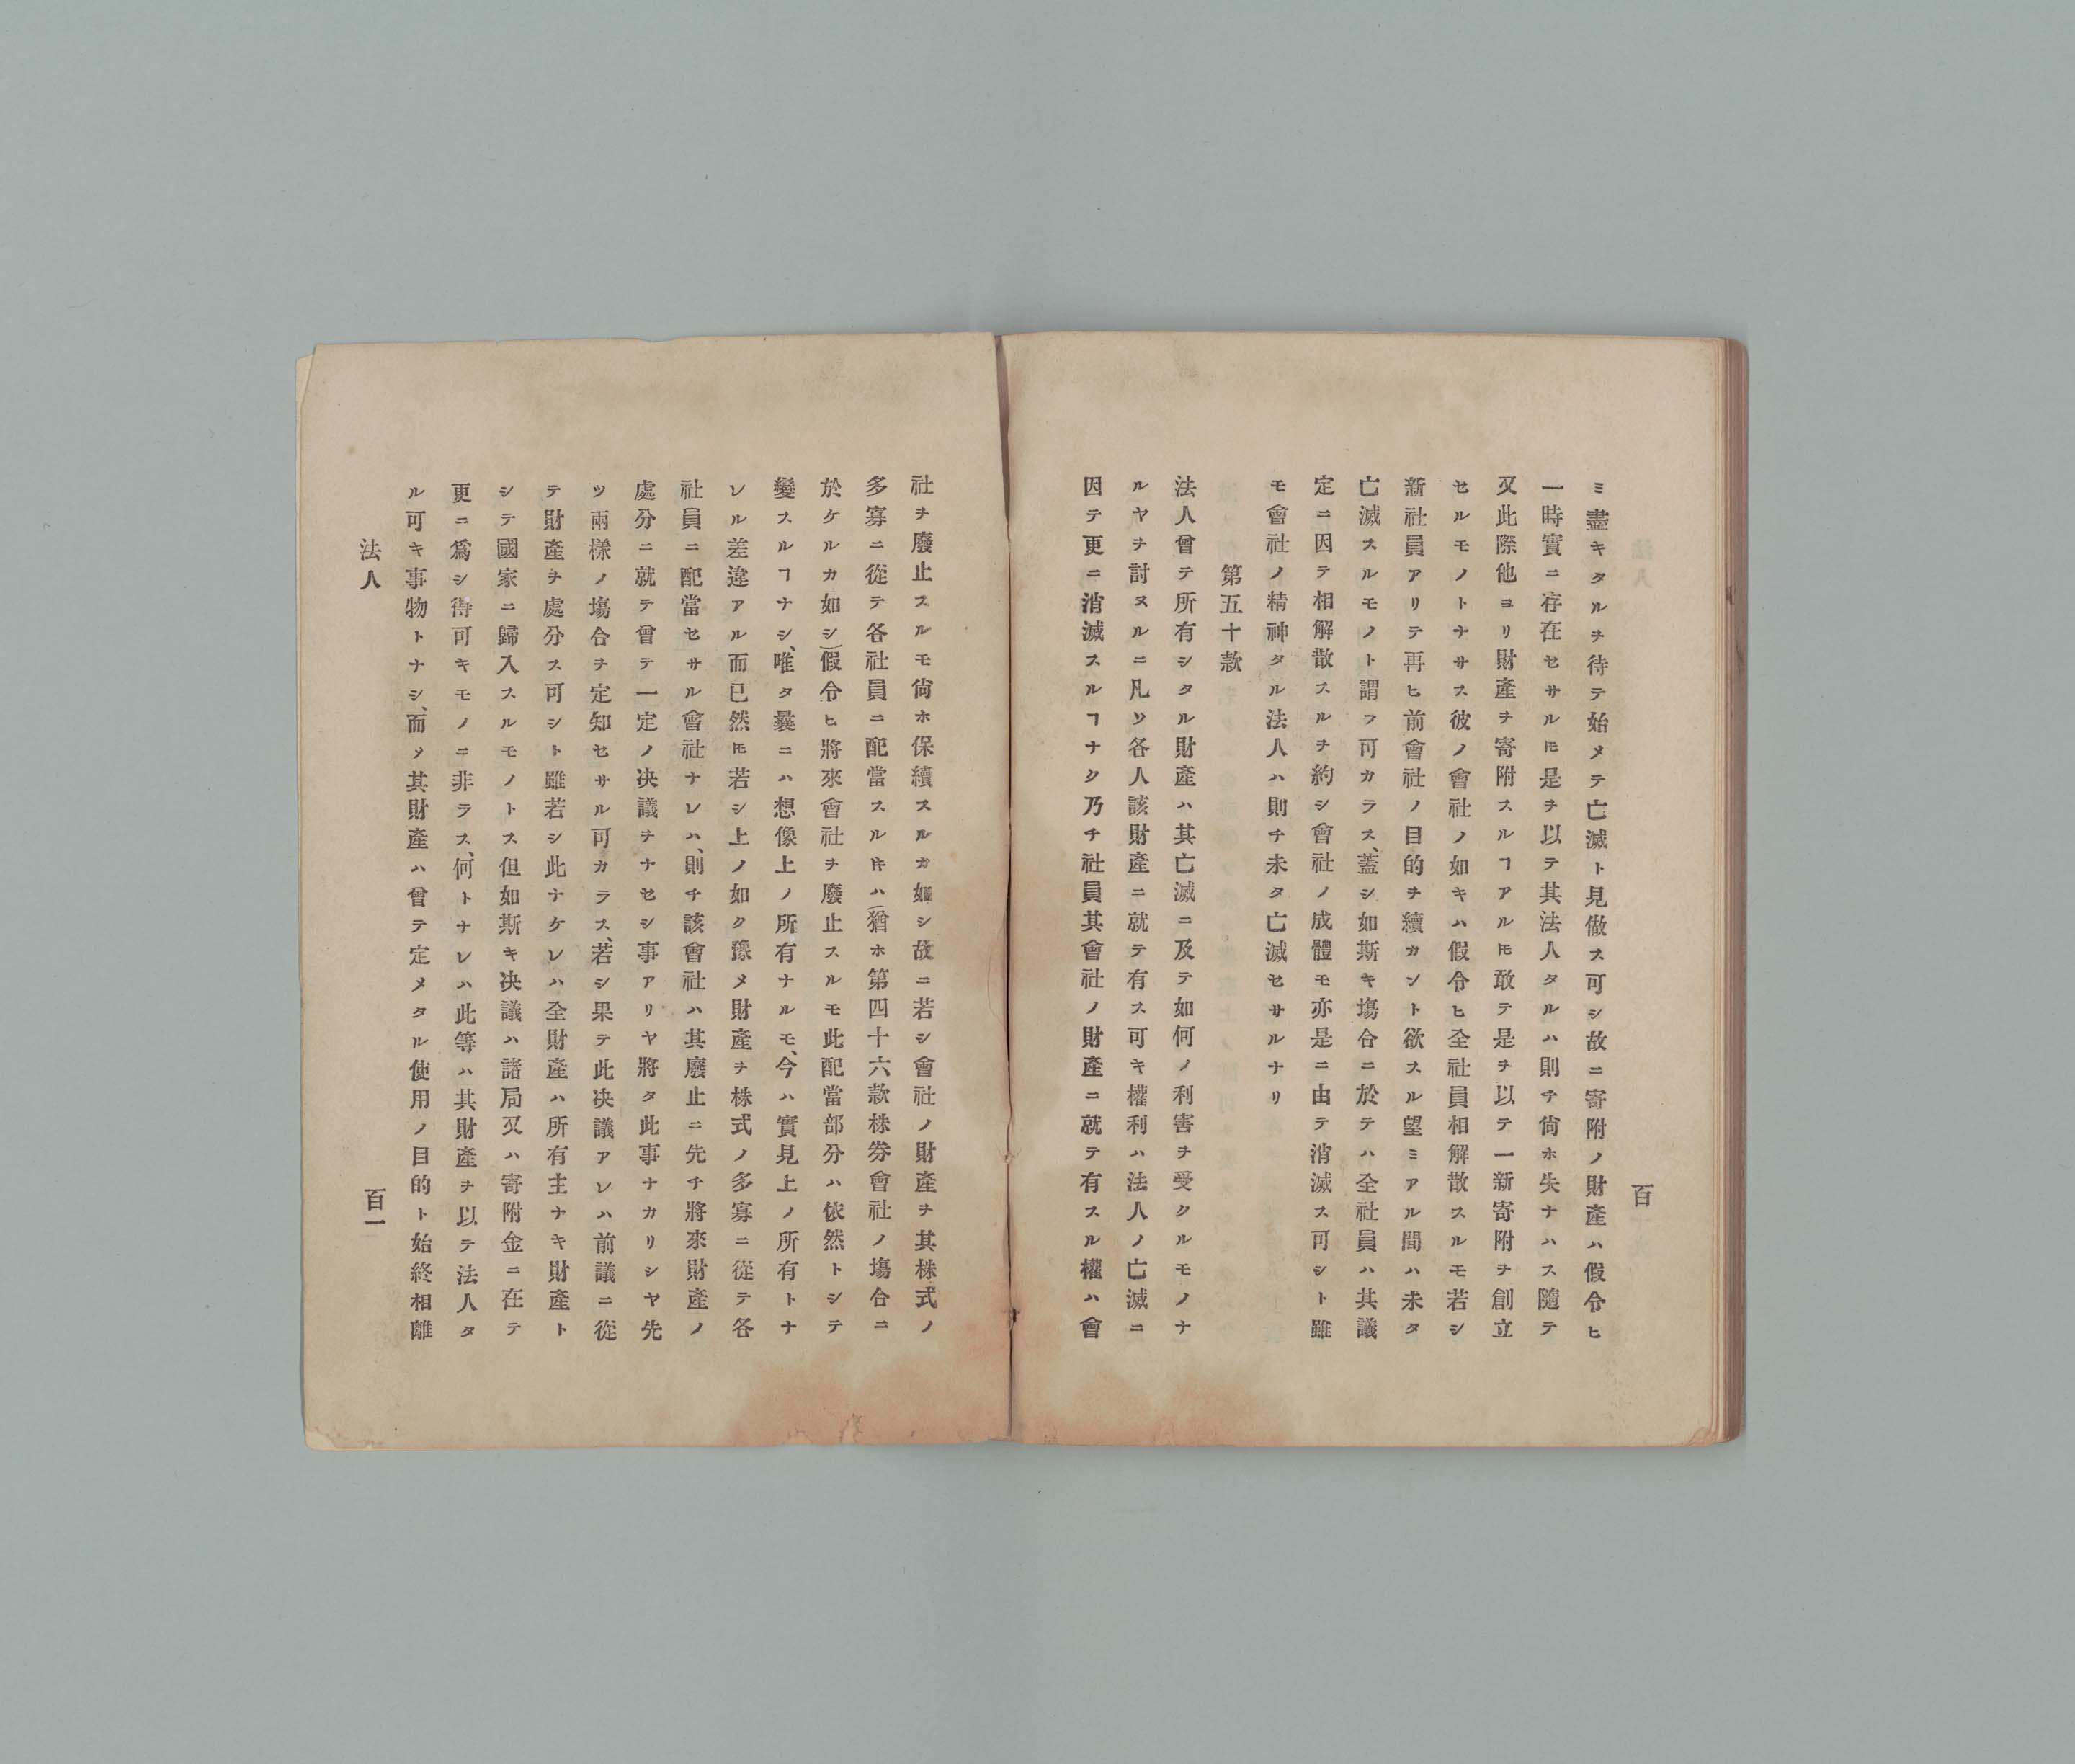 百
ミ盡キタルヲ待テ始メテ亡滅ト見做ス可シ故ニ寄附ノ財產ハ假令ヒ
一時實ニ存在セサルモ是ヲ以テ其法人タルハ則チ尙ホ失ナハス隨テ
又此際他ヨリ財產ヲ寄附スルヿアルモ敢テ是ヲ以テ一新寄附ヲ創立
セルモノトナサス彼ノ會社ノ如キハ假令ヒ全社員相解散スルモ若シ
新社員アリテ再ヒ前會社ノ目的ヲ續カント欲スル望ミアル間ハ未タ
亡滅スルモノト謂フ可カラス、蓋シ如斯キ塲合ニ於テハ全社員ハ其議
定ニ因テ相解散スルヲ約シ會社ノ成體モ亦是ニ由テ消滅ス可シト雖
モ會社ノ精神タル法人ハ則チ未タ亡滅セサルナリ
第五十款
法人曾テ所有シタル財產ハ其亡滅ニ及テ如何ノ利害ヲ受クルモノナ
ルヤヲ討ヌルニ凡ソ各人該財產ニ就テ有ス可キ權利ハ法人ノ亡滅ニ
因テ更ニ消滅スルヿナク乃チ社員其會社ノ財產ニ就テ有スル權ハ會
社ヲ廢止スルモ尙ホ保續スルカ如シ故ニ若シ會社ノ財產ヲ其株式ノ
多寡ニ從テ各社員ニ配當スルキハ(猶ホ第四十六款株劵會社ノ塲合ニ
於ケルカ如シ)假令ヒ將來會社ヲ廢止スルモ此配當部分ハ依然トシテ
變スルヿナシ、唯タ曩ニハ想像上ノ所有ナルモ、今ハ實見上ノ所有トナ
レル差違アル而已然モ若シ上ノ如ク豫メ財產ヲ株式ノ多寡ニ從テ各
社員ニ配當セサル會社ナレハ、則チ該會社ハ其廢止ニ先チ將來財產ノ
處分ニ就テ曾テ一定ノ决議ヲナセシ事アリヤ將タ此事ナカリシヤ先
ツ兩樣ノ塲合ヲ定知セサル可カラス、若シ果テ此决議アレハ前議ニ從
テ財產ヲ處分ス可シト雖若シ此ナケレハ全財產ハ所有主ナキ財產ト
シテ國家ニ歸入スルモノトス但如斯キ决議ハ諸局又ハ寄附金ニ在テ
更ニ爲シ得可キモノニ非ラス、何トナレハ此等ハ其財產ヲ以テ法人タ
ル可キ事物トナシ、而メ其財產ハ曾テ定メタル使用ノ目的ト始終相離
法人
百一